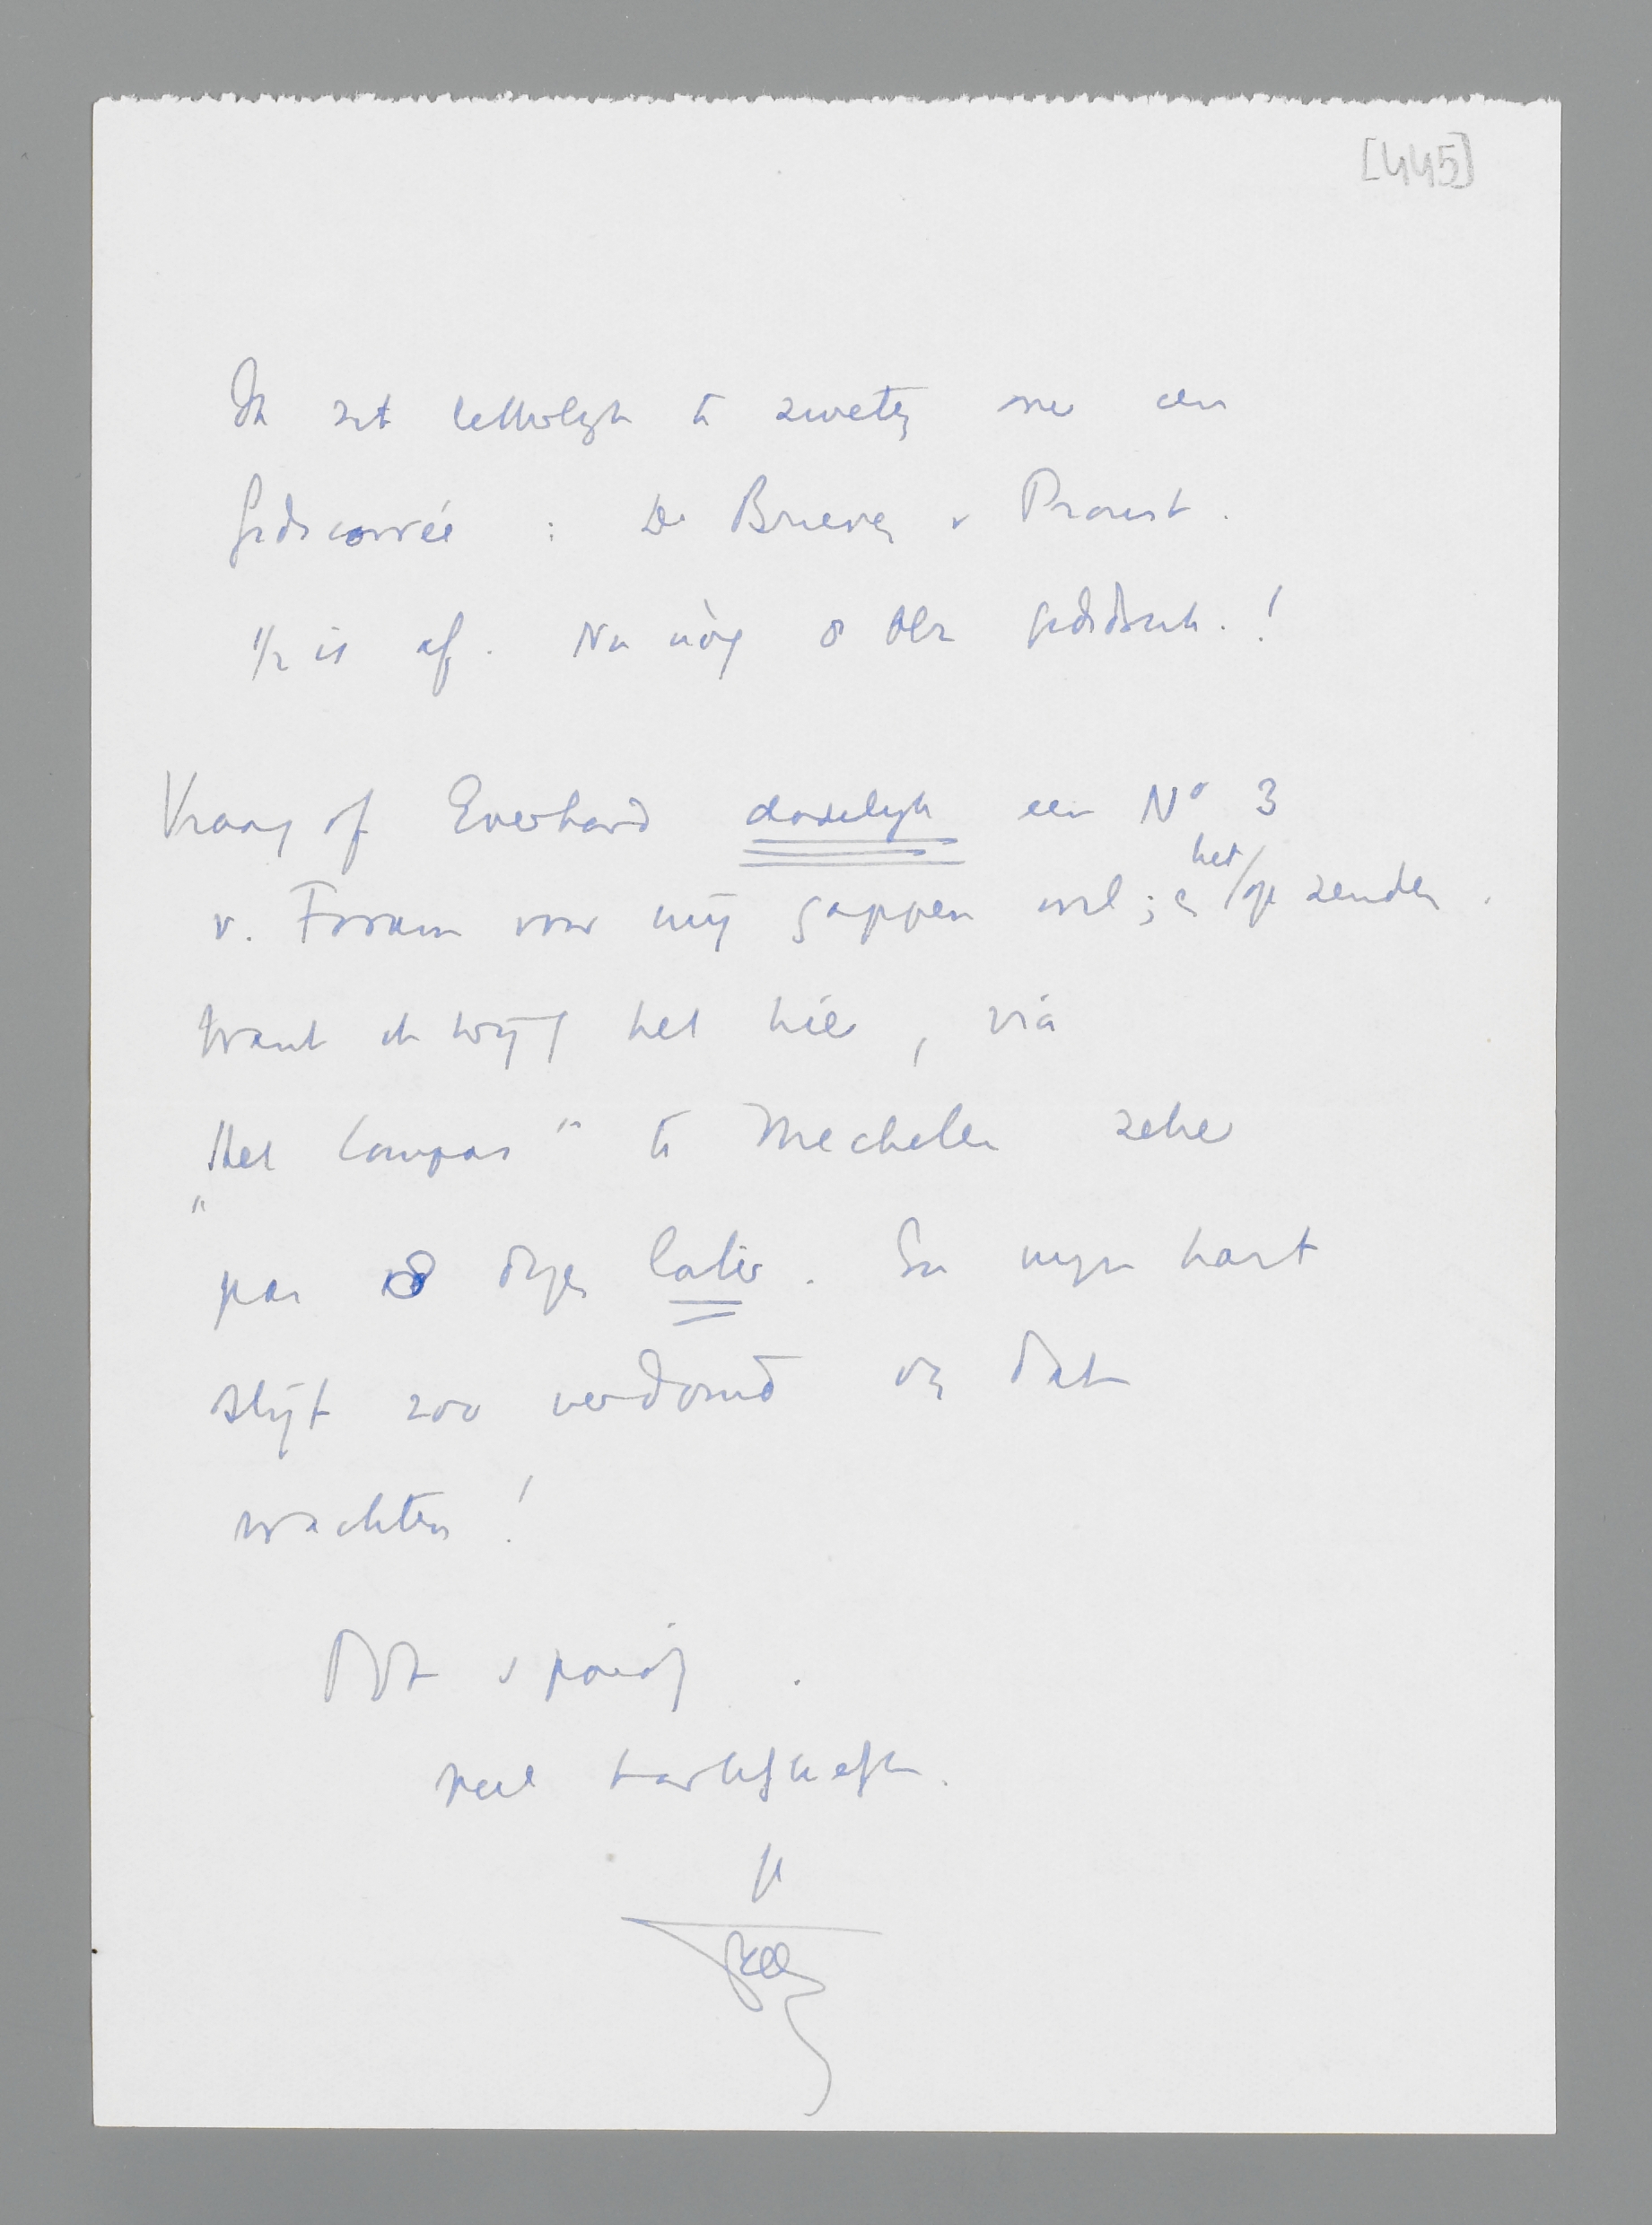 [445]
Ik zit letterlijk te zweten over een
: De Brieven v Proust.
1/2 is af. Nu nòg 8 blz !
Vraag of Everhard dadelijk een No 3
v. Forum voor mij gappen wil; en het/op zenden.
Want ik krijg het hier, via
"Het Kompas" te Mechelen zeker
pas 8 dagen later. En mijn hart
slijt zoo verdomd van dat
wachten!
spoedig.
Veel hartelijks
je